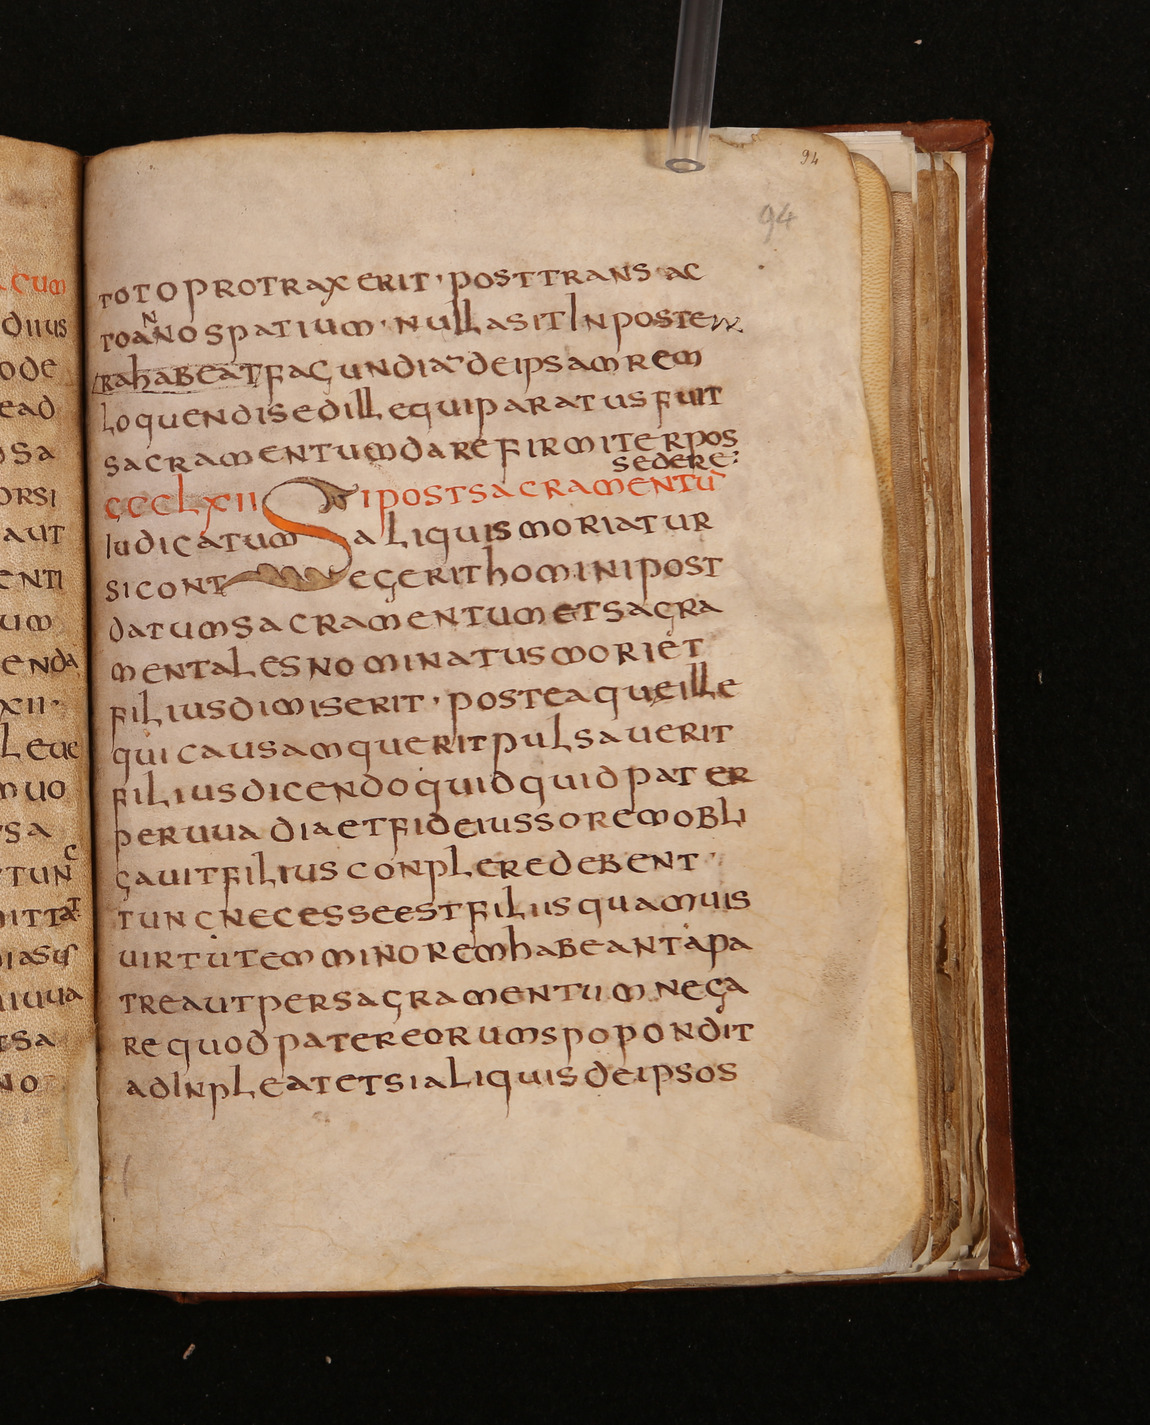 94
94
TOTOPROTRAXERIT · POSTTRANSAC
TOANNOSPATIUM · NULLASITINPOSTE
RAHABEATFACUNDIADEIPSAMREM
LOQUENDISEDILLEQUIPARATUSFUIT
SACRAMENTUMDAREFIRMITERPOS
SEDERE
CCCLXII SIPOSTSACRAMENTŪ
IUDICATUM ALIQUISMORIATUR
SICONTEGERITHOMINIPOST
DATUMSACRAMENTUMETSACRA
MENTALESNOMINATUSMORIET
FILIUSDIMISERIT · POSTEAQUEILLE
QUICAUSAMQUERITPULSAUERIT
FILIUSDICENDOQUIDQUIDPATER
PERUUADIAETFIDEIUSSOREMOBLI
GAUITFILIUSCONPLEREDEBENT
TUNCNECESSEESTFILIISQUAMUIS
UIRTUTEMMINOREMHABEANTAPA
TREAUTPERSACRAMENTUMNEGA
REQUODPATEREORUMSPOPONDIT
ADINPLEATETSIALIQUISDEIPSOS